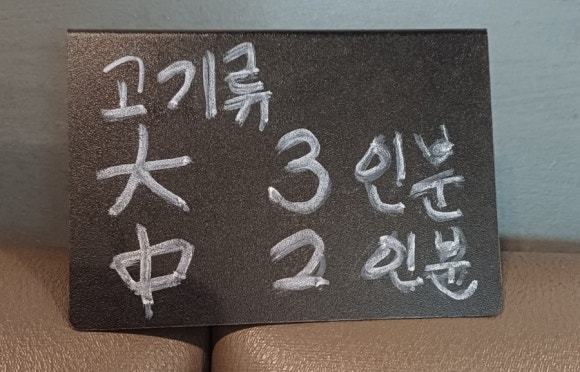 고기류
大 3 인분
中 2 인분